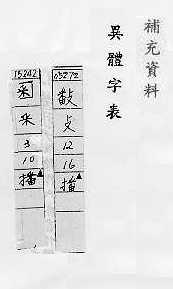 補充資料
異體字表
03272
攴
12
16
播▲
15242
釆
3
10
播▲